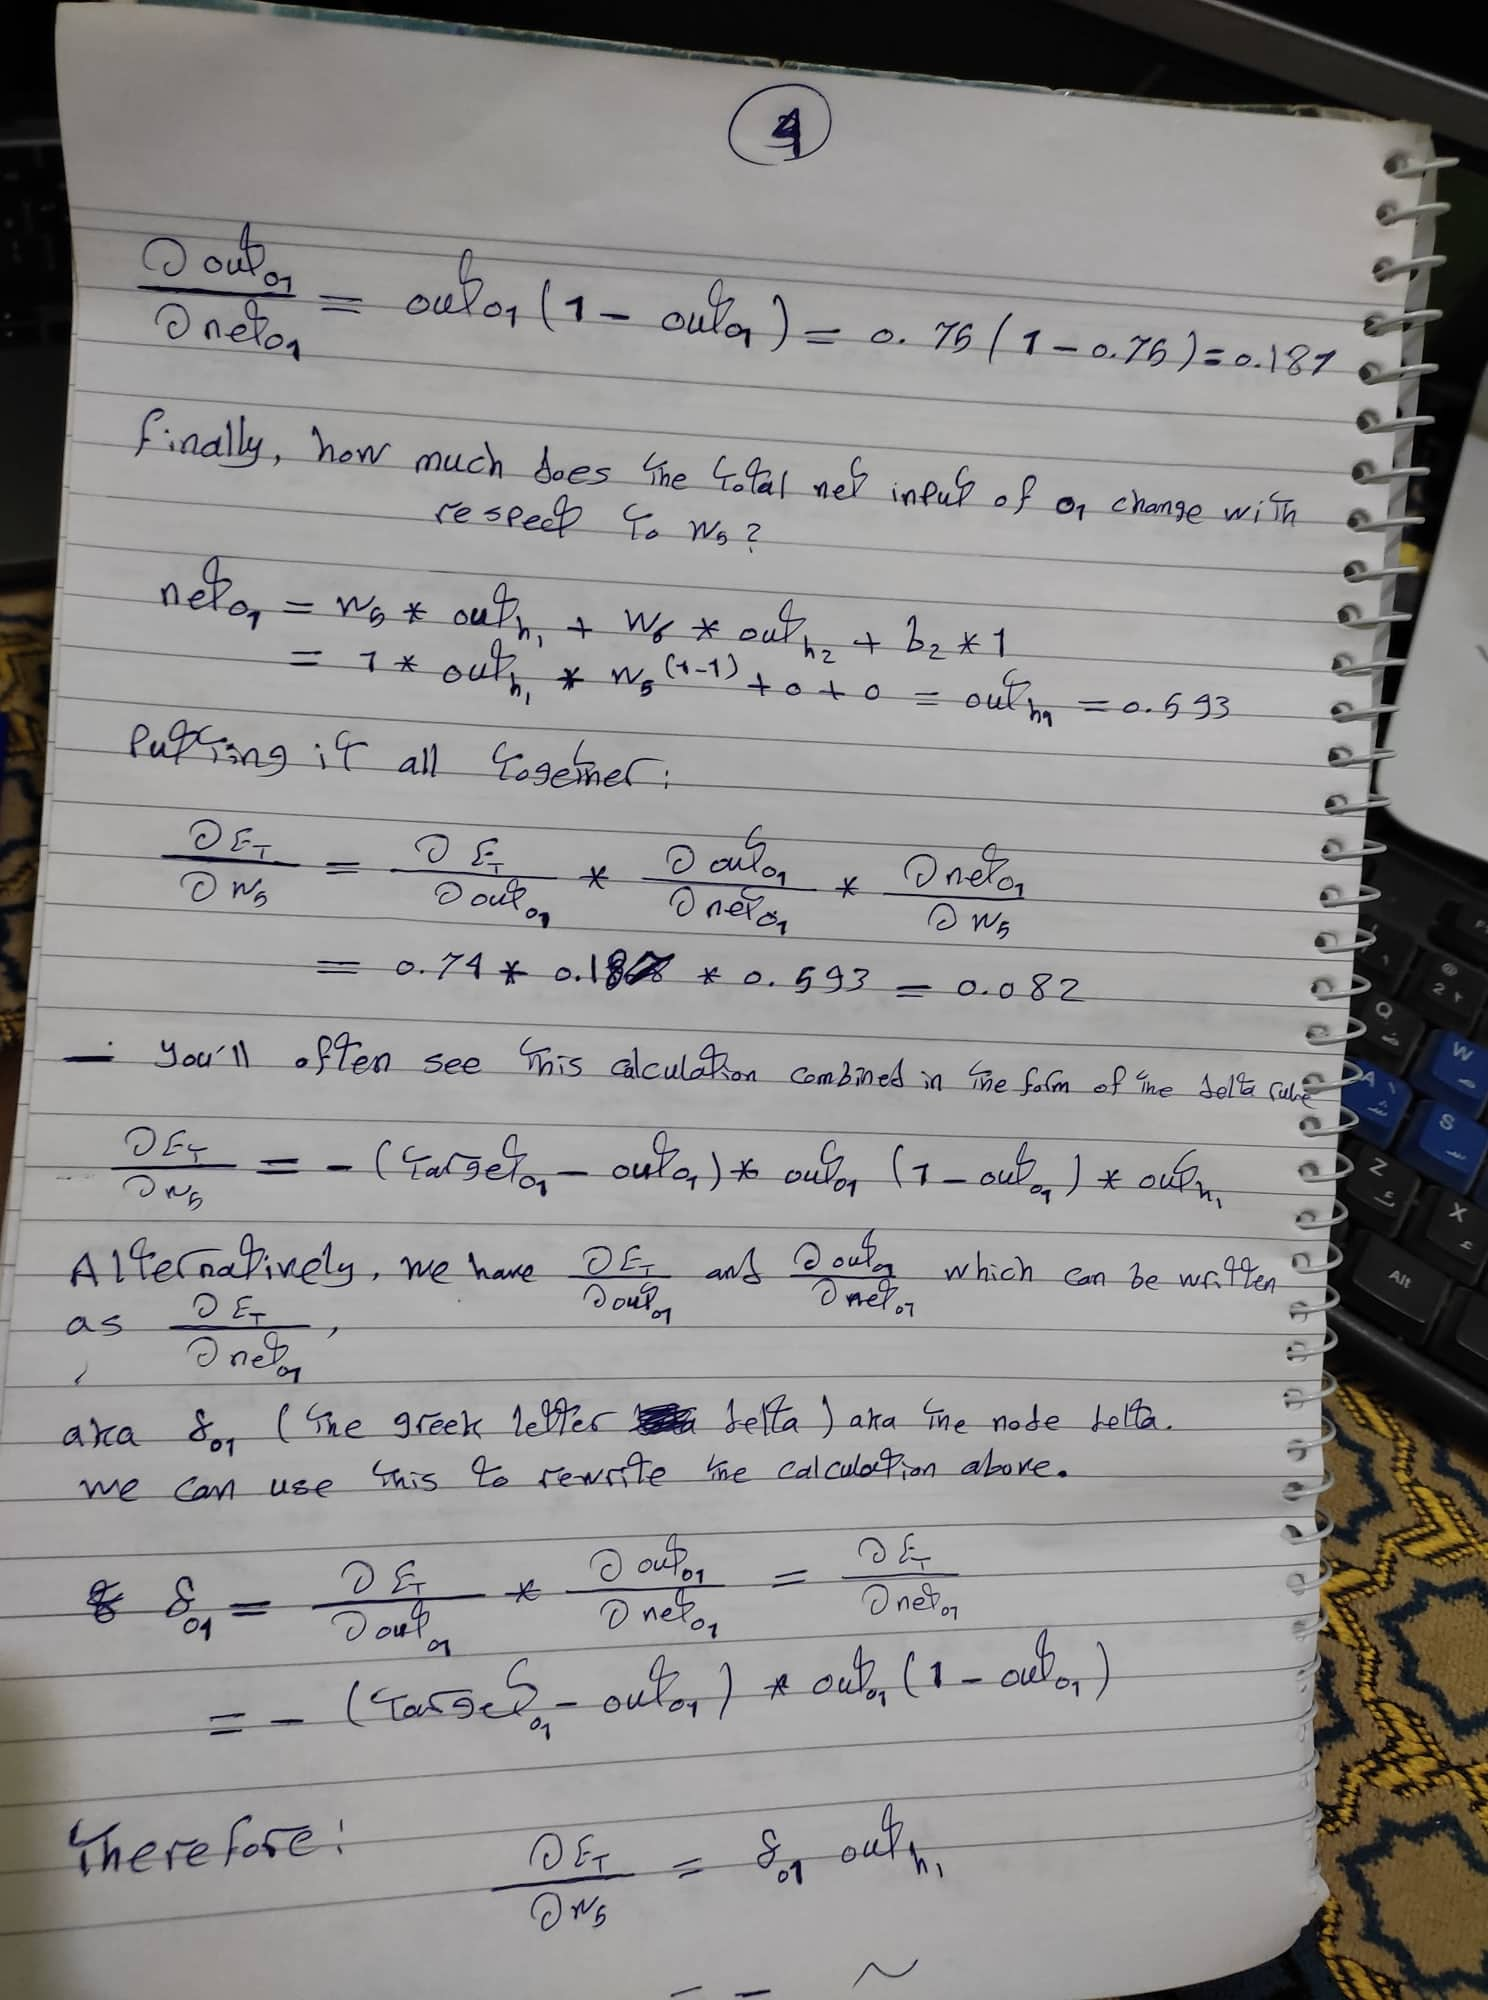 4
∂out₀₁/∂net₀₁ = out₀₁ (1 - out₀₁) = 0.75 (1 - 0.75) = 0.187
Finally, how much does the total net input of o₁ change with
respect to w₅?
net₀₁ = w₅ * out_h₁ + w₆ * out_h₂ + b₂ * 1
= 1 * out_h₁ * w₅^(1-1) + 0 + 0 = out_h₁ = 0.593
Putting it all together:
∂E_T/∂w₅ = ∂E_T/∂out₀₁ * ∂out₀₁/∂net₀₁ * ∂net₀₁/∂w₅
= 0.74 * 0.18 * 0.593 = 0.082
— You'll often see this calculation combined in the form of the delta rule
∂E_T/∂w₅ = -(target₀₁ - out₀₁) * out₀₁ (1 - out₀₁) * out_h₁
Alternatively, we have ∂E_T/∂out₀₁ and ∂out₀₁/∂net₀₁ which can be written
as ∂E_T/∂net₀₁,
aka δ₀₁ (the greek letter delta) aka the node delta.
we can use this to rewrite the calculation above.
δ₀₁ = ∂E_T/∂out₀₁ * ∂out₀₁/∂net₀₁ = ∂E_T/∂net₀₁
= - (target₀₁ - out₀₁) * out₀₁ (1 - out₀₁)
Therefore:
∂E_T/∂w₅ = δ₀₁ out_h₁
Q
@
2
W
A
S
Z
X
Alt